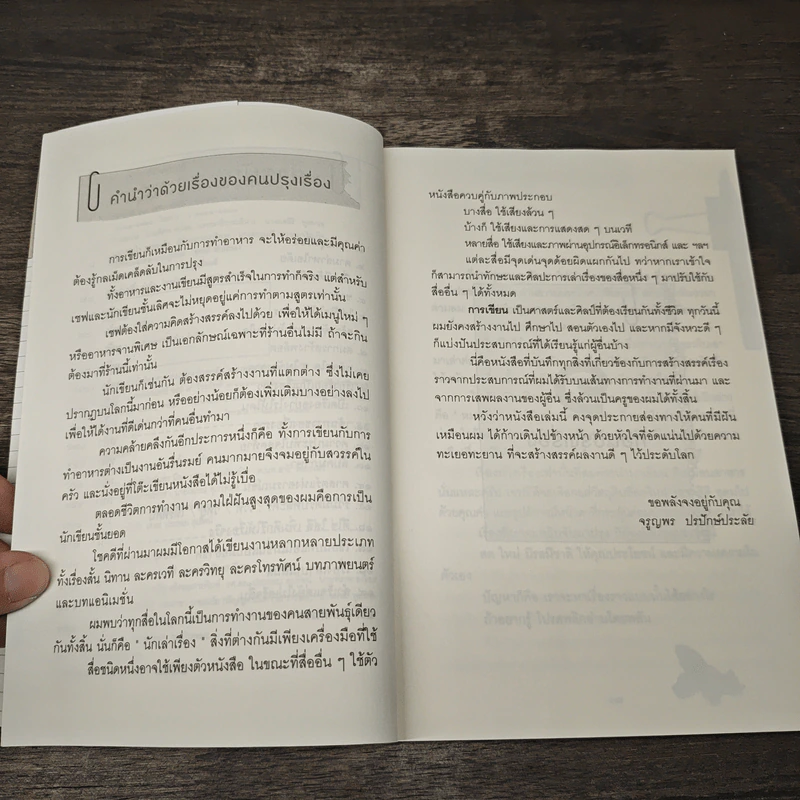 คำนำว่าด้วยเรื่องของคนปรุงเรื่อง
การเขียนก็เหมือนกับการทำอาหาร จะให้อร่อยและมีคุณค่า
ต้องรู้กลเม็ดเคล็ดลับในการปรุง
ทั้งอาหารและงานเขียนมีสูตรสำเร็จในการทำก็จริง แต่สำหรับ
เชฟและนักเขียนชั้นเลิศจะไม่หยุดอยู่แค่การทำตามสูตรเท่านั้น
เชฟต้องใส่ความคิดสร้างสรรค์ลงไปด้วย เพื่อให้ได้เมนูใหม่ ๆ
หรืออาหารจานพิเศษ เป็นเอกลักษณ์เฉพาะที่ร้านอื่นไม่มี ถ้าจะกิน
ต้องมาที่ร้านนี้เท่านั้น
นักเขียนก็เช่นกัน ต้องสรรค์สร้างงานที่แตกต่าง ซึ่งไม่เคย
ปรากฏบนโลกนี้มาก่อน หรืออย่างน้อยก็ต้องเพิ่มเติมบางอย่างลงไป
เพื่อให้ได้งานที่ดีเด่นกว่าที่คนอื่นทำมา
ความคล้ายคลึงกันอีกประการหนึ่งก็คือ ทั้งการเขียนกับการ
ทำอาหารต่างเป็นงานอันรื่นรมย์ คนมากมายจึงจมอยู่กับสวรรค์ใน
ครัว และนั่งอยู่ที่โต๊ะเขียนหนังสือได้ไม่รู้เบื่อ
ตลอดชีวิตการทำงาน ความใฝ่ฝันสูงสุดของผมคือการเป็น
นักเขียนชั้นยอด
โชคดีที่ผ่านมาผมมีโอกาสได้เขียนงานหลากหลายประเภท
ทั้งเรื่องสั้น นิทาน ละครเวที ละครวิทยุ ละครโทรทัศน์ บทภาพยนตร์
และบทแอนิเมชั่น
ผมพบว่าทุกสื่อในโลกนี้เป็นการทำงานของคนสายพันธุ์เดียว
กันทั้งสิ้น นั่นก็คือ " นักเล่าเรื่อง " สิ่งที่ต่างกันมีเพียงเครื่องมือที่ใช้
สื่อชนิดหนึ่งอาจใช้เพียงตัวหนังสือ ในขณะที่สื่ออื่น ๆ ใช้ตัว
หนังสือควบคู่กับภาพประกอบ
บางสื่อ ใช้เสียงล้วน ๆ
บ้างก็ ใช้เสียงและการแสดงสด ๆ บนเวที
หลายสื่อ ใช้เสียงและภาพผ่านอุปกรณ์อิเล็กทรอนิกส์ และ ฯลฯ
แต่ละสื่อมีจุดเด่นจุดด้อยผิดแผกกันไป ทว่าหากเราเข้าใจ
ก็สามารถนำทักษะและศิลปะการเล่าเรื่องของสื่อหนึ่ง ๆ มาปรับใช้กับ
สื่ออื่น ๆ ได้ทั้งหมด
การเขียน เป็นศาสตร์และศิลป์ที่ต้องเรียนกันทั้งชีวิต ทุกวันนี้
ผมยังคงสร้างงานไป ศึกษาไป สอนตัวเองไป และหากมีจังหวะดี ๆ
ก็แบ่งปันประสบการณ์ที่ได้เรียนรู้แก่ผู้อื่นบ้าง
นี่คือหนังสือที่บันทึกทุกสิ่งที่เกี่ยวข้องกับการสร้างสรรค์เรื่อง
ราวจากประสบการณ์ที่ผมได้รับบนเส้นทางการทำงานที่ผ่านมา และ
จากการเสพผลงานของผู้อื่น ซึ่งล้วนเป็นครูของผมได้ทั้งสิ้น
หวังว่าหนังสือเล่มนี้ คงจุดประกายส่องทางให้คนที่มีฝัน
เหมือนผม ได้ก้าวเดินไปข้างหน้า ด้วยหัวใจที่อัดแน่นไปด้วยความ
ทะเยอทะยาน ที่จะสร้างสรรค์ผลงานดี ๆ ไว้ประดับโลก
ขอพลังจงอยู่กับคุณ
จรูญพร ปรปักษ์ประลัย